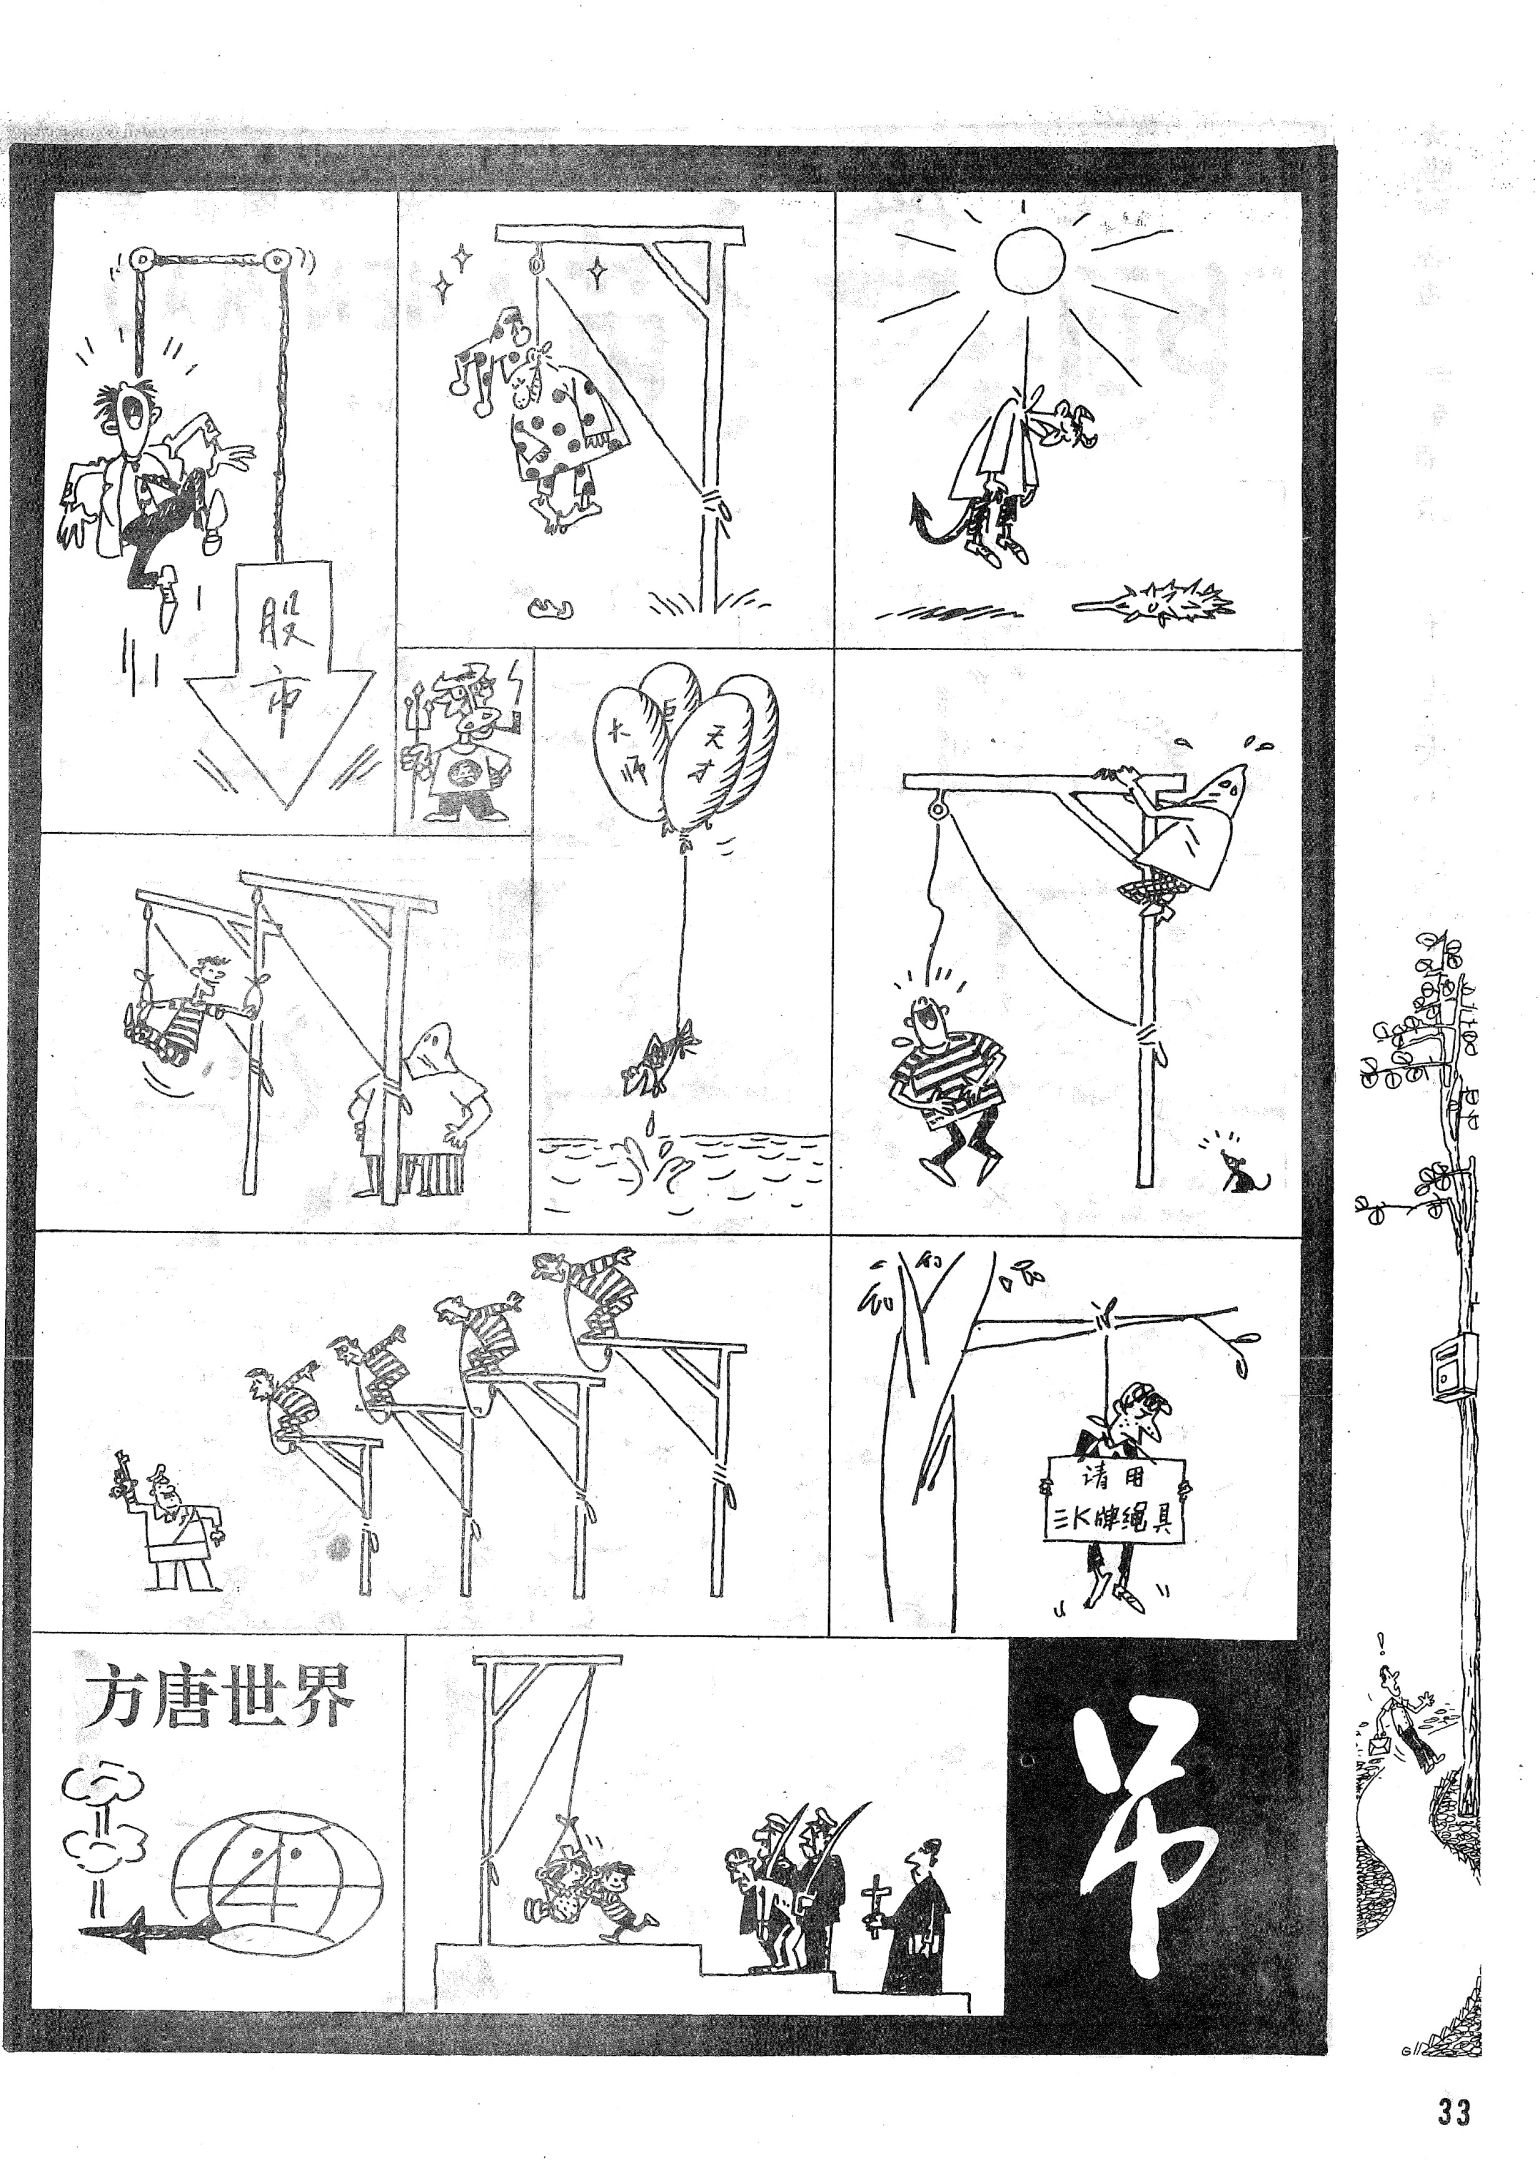 股
市
大师
巨
天才
请用
三K牌绳具
方唐世界
吊
33